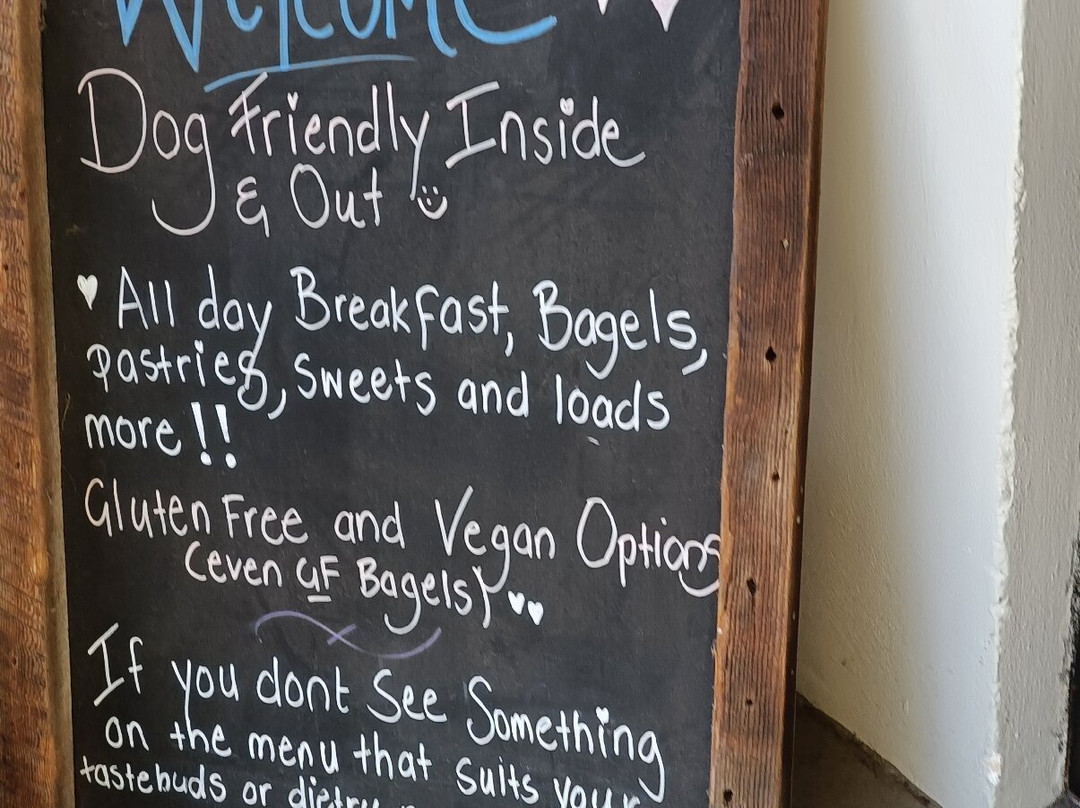 Welcome
Dog Friendly Inside
& Out
All day Breakfast, Bagels,
Pastries, Sweets and loads
more!!
Gluten Free and Vegan Options
(even GF Bagels)
If you dont See Something
on the menu that suits your
tastebuds or dietry